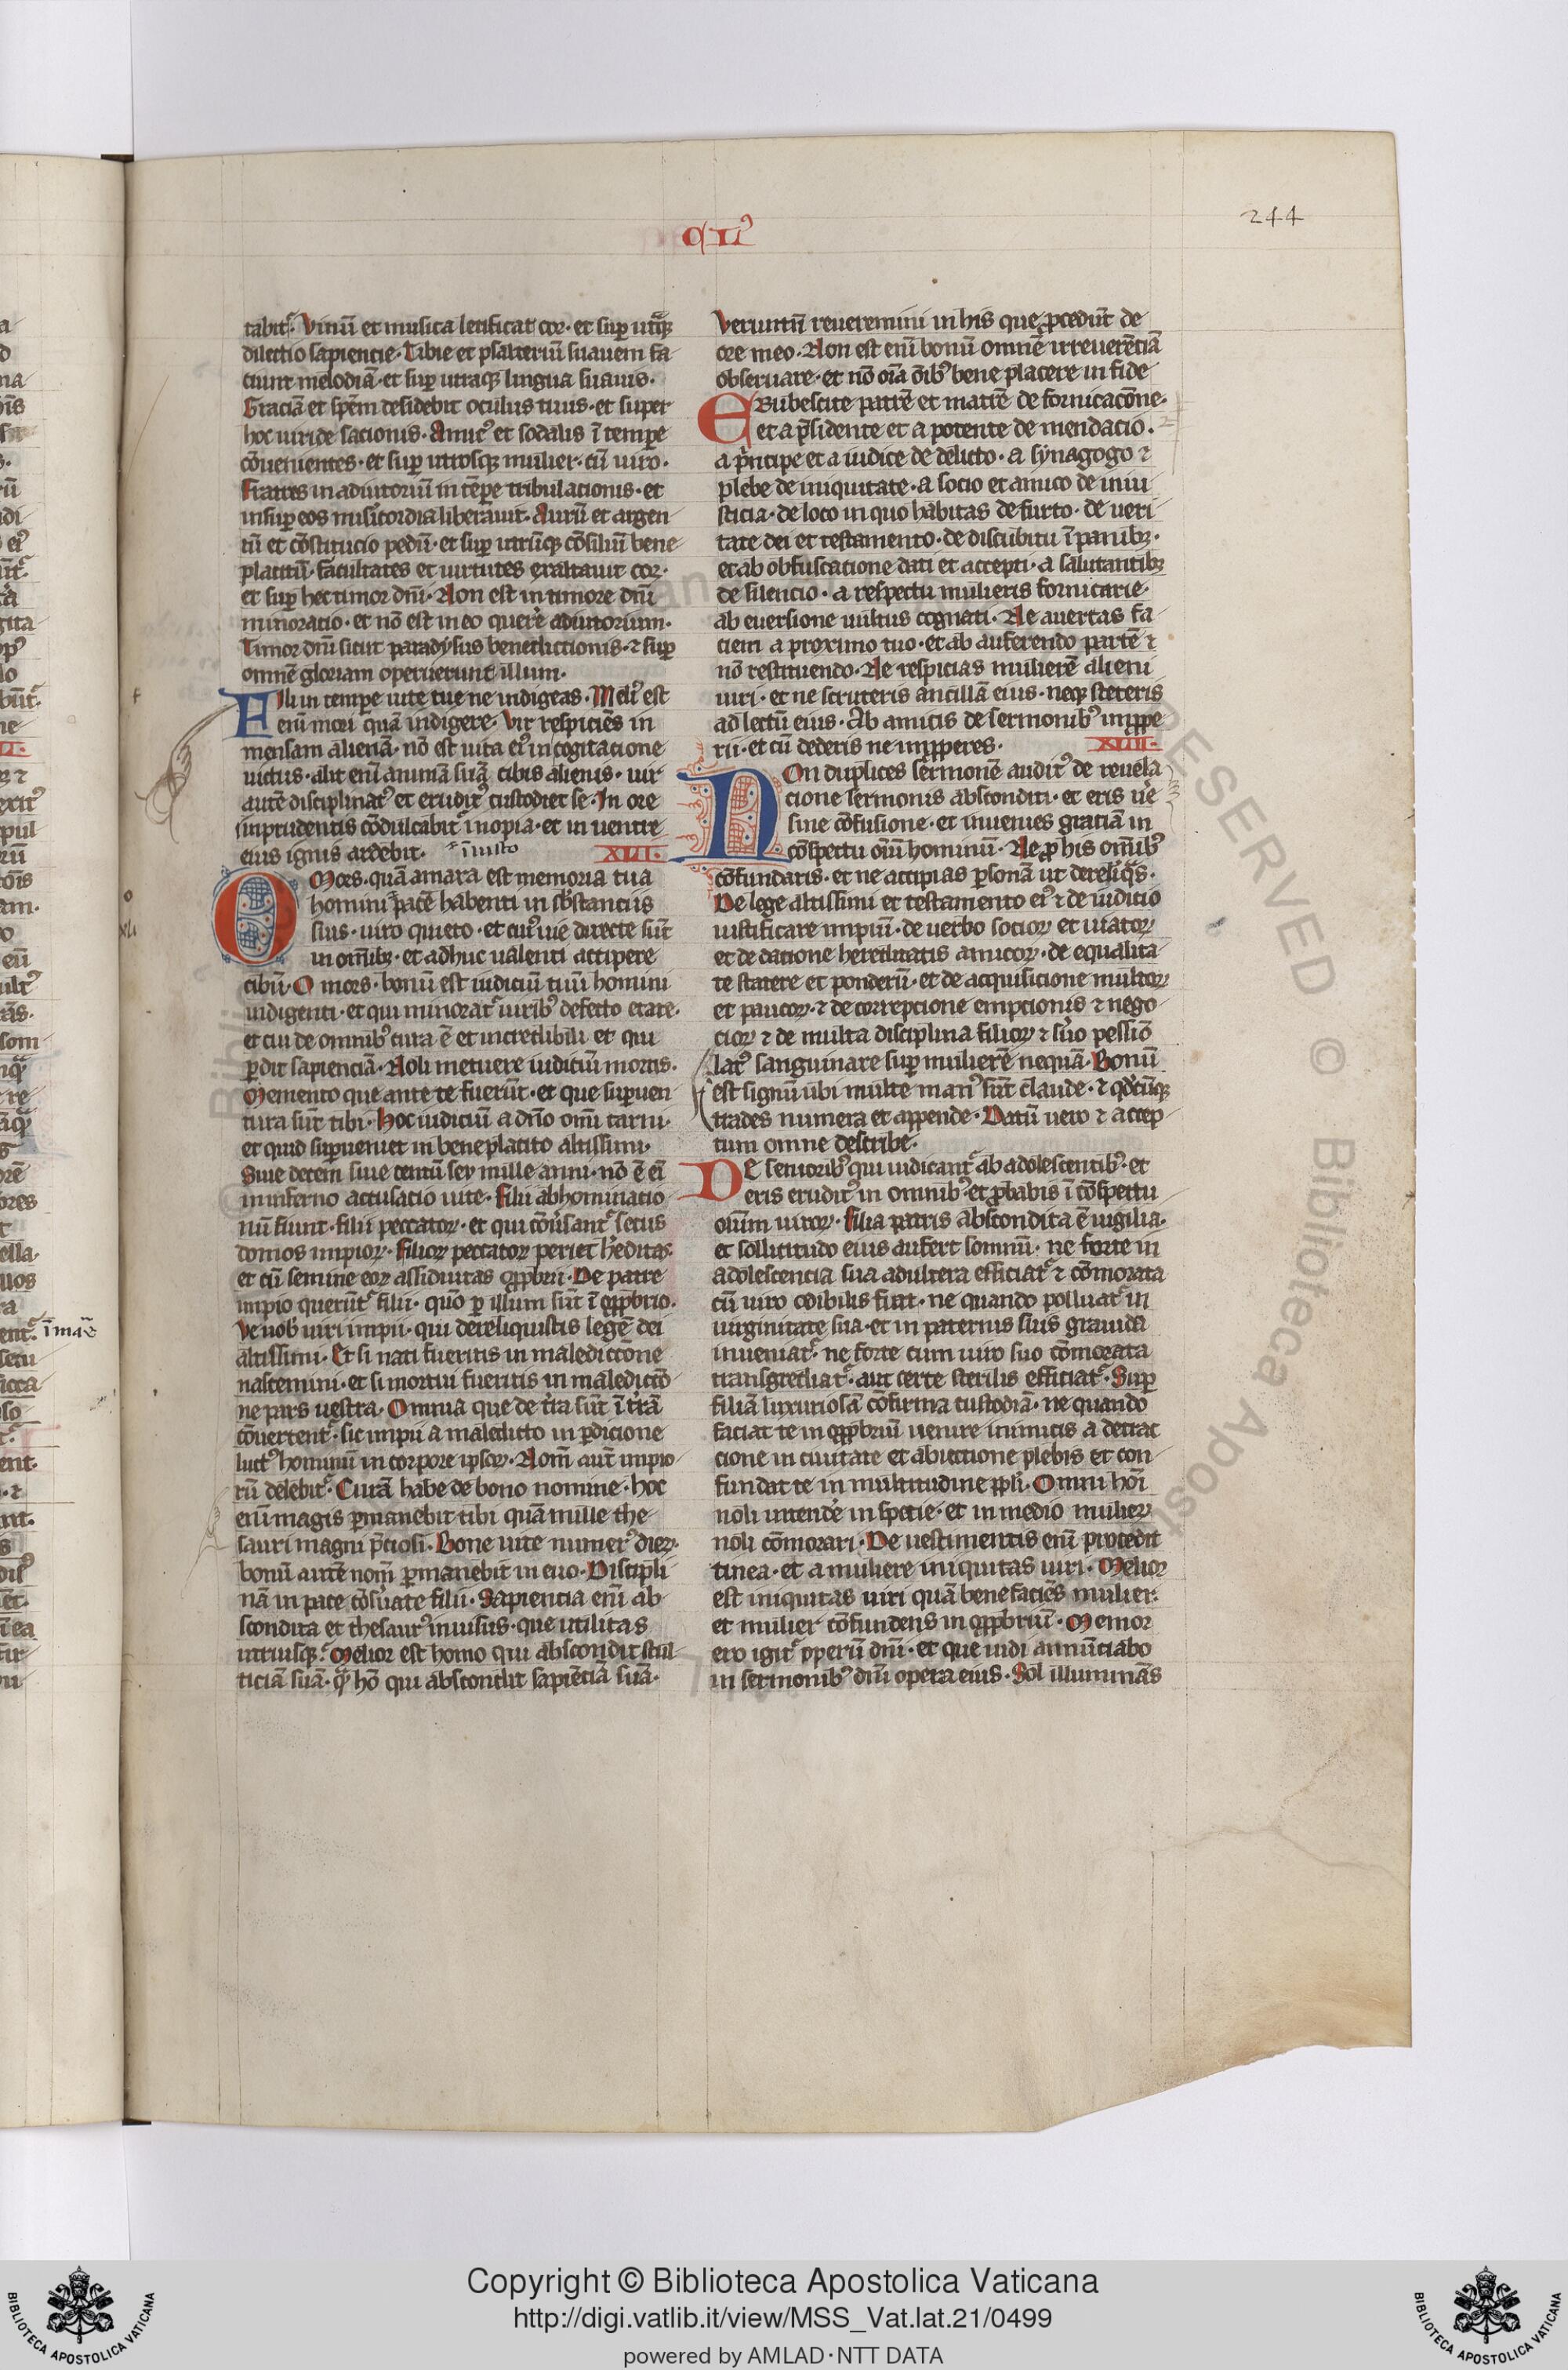 244
tabit᷑. Vinū et musica letificat cor· et sup utrūq̄
dilectio sapientie· Tibie et psalteriū suauem fa
ciunt melodiā· et sup utraq̄ lingua suauis·
Graciā et spēm desidebit oculus tuus· et super
hoc uiride sacionis· Amicꝰ et sodalis ī tempe
cōuenientes· et sup utrosq̄ mulier· cū uiro·
Fratres in adiutoriū in tēpe tribulacionis· et
insup eos misicordia liberauit· Aurū et argen
tū et cōstitucio pedū· et sup utrūq̄ cōsiliū bene
placitū· facultates et uirtutes exaltauit cor·
et sup hec timor dnī· Non est in timore dnī
minoratio· et nō est in eo querē adiutorium·
Timor dnī sicut paradysus benedictionis· ⁊ sup
omnē gloriam operuerunt illum·
Fili in tempe uite tue ne indigeas· Meliꝰ est
enī mori quā indigere· Vir respiciēs in
mensam alienā· nō est uita eiꝰ in cogitacione
uictus· alit enī animā suā cibis alienis· uir
autē disciplinatꝰ et eruditꝰ custodiet se· In ore
inprudentis cōdulcabit᷑ inopia· et in uentre
eius ignis ardebit· XLII·
O Mors· quā amara est memoria tua
homini pacē habenti in sbstanciis
suis· uiro quieto· et cuiꝰ uie directe sūt
in omībꝫ· et adhuc ualenti accipere
cibū· O mors· bonū est iudiciū tuū homini
indigenti· et qui minorat᷑ uiribꝰ defecto etate·
et cui de omnibꝰ cura ē et incredibili et qui
ꝑdit sapienciā· Noli metuere iudiciū mortis·
Memento que ante te fuerūt· et que supuen
tura sūt tibi· Hoc iudiciū a dn̄o omī carni·
et quid supueniet in beneplacito altissimi·
Siue decem siue centū seu mille anni· nō ē eī
in inferno accusacio uite· Filii abhominatio
nū fiunt· filii peccatoꝝ· et qui cōūsant᷑ secus
domos impioꝝ· Filioꝝ peccatoꝝ periet h̄editas·
et cū semine eoꝝ assiduitas opp̄brii· De patre
impio querūt᷑ filii· quō ꝑ illum sūt ī opp̄brio·
Ve uob uiri impii· qui dereliquistis legē dei
altissimi· Et si nati fueritis in maledictōne
nascemini· et si mortui fueritis in maledictō
ne pars uestra· Omnia que de t̄ra sūt ī t̄rā
cōuertent᷑· sic impii a maledicto in ꝑdicione
luctꝰ hominū in corpore ipsoꝝ· Nom̄ aūt impio
rū delebit᷑· Curā habe de bono nomine· hoc
enī magis ꝑmanebit tibi quā mille the
sauri magni p̄ciosi· Bone uite numerꝰ dieꝝ·
bonū autē nom̄ ꝑmanebit in euo· Discipli
nā in pace cōs̄uate filii· Sapiencia enī ab
scondita et thesaurꝰ inuisus· que utilitas
utriusq̄· Melior est homo qui abscondit stul
ticiā suā· q̄ hō qui abscondit sapiēciā suā·
Veruntn̄ reueremini in his que ꝓcedūt de
ore meo· Non est enī bonū omnē irreuerēciā
obseruare· et nō oīa ōibꝰ bene placere in fide
Erubescite patrē et matrē de fornicacōne·
et a p̄sidente et a potente de mendacio·
a p̄ncipe et a iudice de delicto· a synagogo ⁊
plebe de iniquitate· a socio et amico de iniu
sticia· de loco in quo habitas de furto· de ueri
tate dei et testamento· de discubitu ī panibꝫ·
et ab obfuscatione dati et accepti· a salutantibꝫ
de silencio· a respectu mulieris fornicarie·
ab euersione uultus cognati· Ne auertas fa
ciem a proximo tuo· et ab auferendo partē ⁊
nō restituendo· Ne respicias mulierē alieni
uiri· et ne scruteris ancillā eius· neqꝫ steteris
ad lectū eius· Ab amicis de sermonibꝰ impꝓpe
rii· et cū dederis ne impꝓperes· XLIII·
Non duplices sermonē auditꝰ de reuela
cione sermonis absconditi· et eris ue
sine cōfusione· et inuenies gratiā in
cōspectu oīū hominū· Ne ꝓ his omībꝰ
cōfundaris· et ne accipias ꝑsonā ut derelīq̄s·
De lege altissimi et testamento eiꝰ ⁊ de iudicio
iustificare impiū· de uerbo socioꝝ et uiatoꝝ
et de datione hereditatis amicoꝝ· de equalita
te statere et ponderū· et de acquisicione multoꝝ
et paucoꝝ· ⁊ de correpcione empcionis ⁊ nego
cioꝝ ⁊ de multa disciplina filioꝝ ⁊ s̄uo pessīo
latꝰ sanguinare sup mulierē nequā· Bonū
est signū ubi multe manꝰ sūt claude· ⁊ qdcūq̄
trades numera et appende· Datū uero ⁊ accep
tum omne describe·
De senioribꝰ qui iudicant᷑ ab adolescentibꝰ· et
eris eruditꝰ in omnibꝰ· et ꝓbabis ī cōspectu
oīum uiroꝝ· Filia patris abscondita ē uigilia·
et sollicitudo eius aufert somnū· ne forte in
adolescencia sua adultera efficiat᷑ ⁊ cōmorata
cū uiro odibilis fiat· ne quando polluat᷑ in
uirginitate sua· et in paternis suis grauida
inueniat᷑· ne forte cum uiro suo cōmorata
transgrediat᷑· aut certe sterilis efficiat᷑· Sup
filiā luxuriosā cōfirma custodiā· ne quando
faciat te in opp̄briū uenire inimicis a detrac
cione in ciuitate et abiectione plebis et con
fundat te in multitudine ppli· Omni hōi
noli intendē in specie· et in medio mulieꝝ
noli cōmorari· De uestimentis enī procedit
tinea· et a muliere iniquitas uiri· Melior
est iniquitas uiri quā benefaciēs mulier·
et mulier cōfundens in opp̄briū· Memor
ero igit᷑ opperū dnī· et que uidi annūciabo
in sermonibꝰ dnī opera eius· Sol illuminās
Copyright © Biblioteca Apostolica Vaticana
http://digi.vatlib.it/view/MSS_Vat.lat.21/0499
powered by AMLAD·NTT DATA